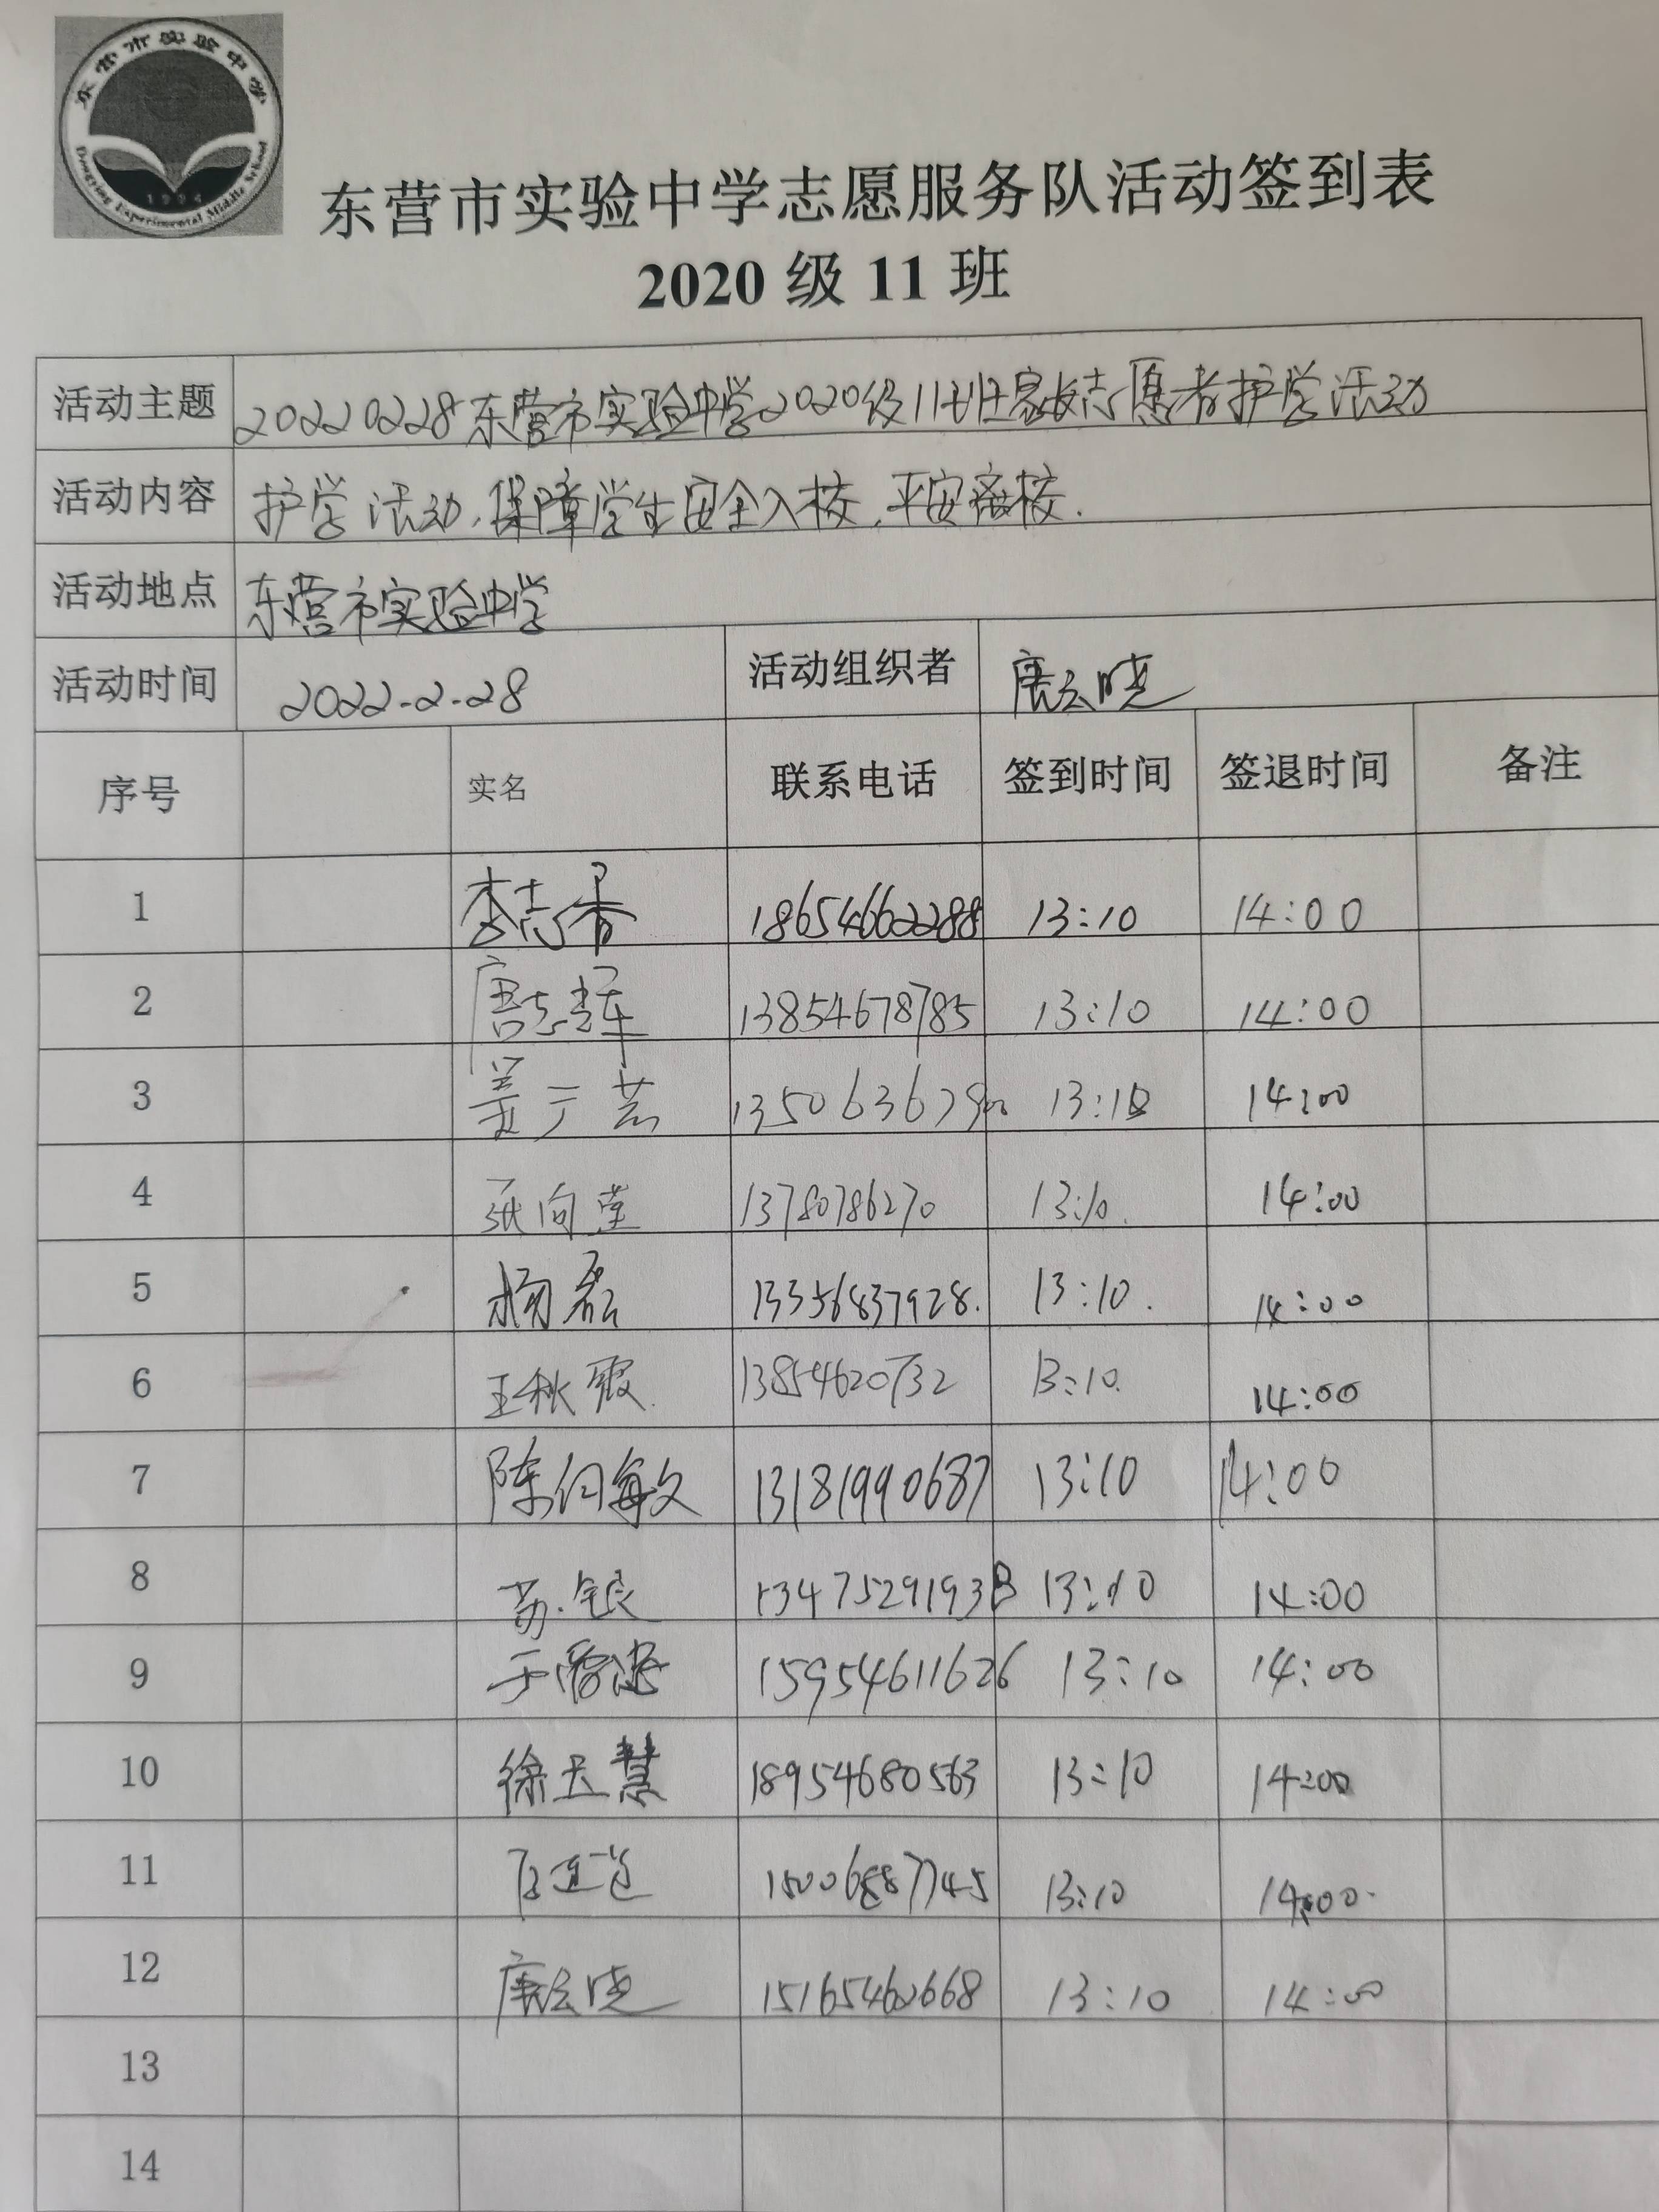 东营市实验中学
Dongying Experimental Middle School
东营市实验中学志愿服务队活动签到表
2020 级 11 班
活动主题 20220228东营市实验中学2020级11班家校志愿者护学活动
活动内容 护学活动,保障学生安全入校,平安离校.
活动地点 东营市实验中学
活动时间 2022-2-28 活动组织者 唐云晓
序号 实名 联系电话 签到时间 签退时间 备注
1 李志香 18654662288 13:10 14:00
2 唐志军 13854678785 13:10 14:00
3 姜广芸 13:10 14:00
4 张向堂 13780786270 13:10. 14:00
5 杨磊 13356837928. 13:10. 14:00
6 王秋霞. 13854620732 13:10. 14:00
7 陈向敏 13181990687 13:10 14:00
8 苏银 13475291938 13:10 14:00
9 于 15954611626 13:10 14:00
10 徐玉慧 18954680563 13:10 14:00
11 15006887745 13:10 14:00.
12 唐云晓 15165462668 13:10 14:00
13
14